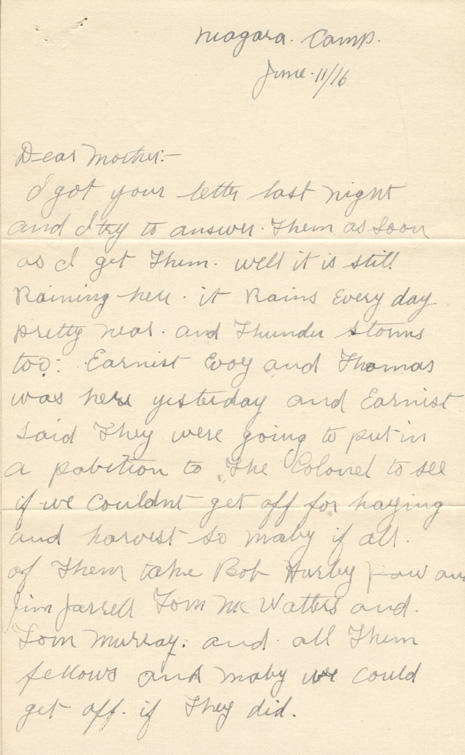 Niagara. Camp.
June. 11/16
Dear Mother:-
I got your letter last night
and I try to answer. Them as soon
as I get Them. well it is still
Raining here. it Rains Every day
pretty near. and Thunder storms
too. Earnist Evoy and Thomas
was here yesterday and Earnist
said They were going to put in
a pabition to The Colonel to see
if we couldnt get off for haying
and harvest so maby if all.
of Them take Bob Hurley
Jim Jarrell Tom Mc Watters and.
Tom Murray. and. all Them
fellows and maby we could
get off. if They did.